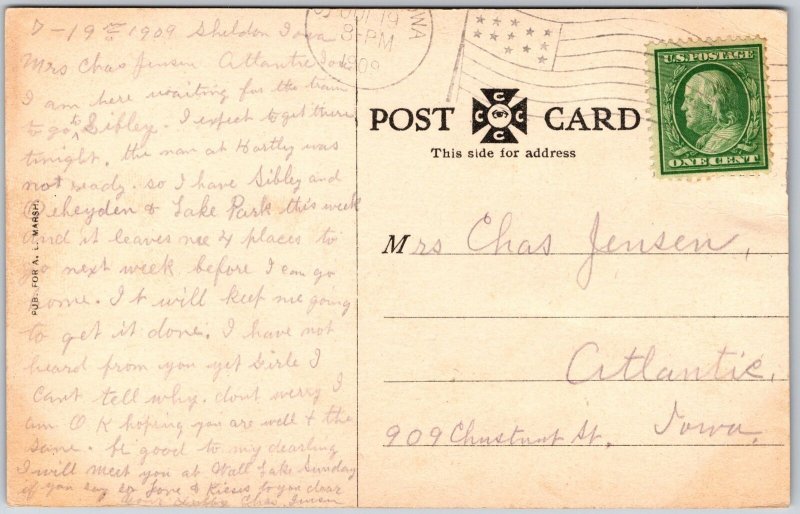 7-19th 1909 Sheldon Iowa
Mrs Chas Jensen Atlantic Iowa
I am here waiting for the train
to go to Sibley. I expect to get there
tonight. the man at Hartley was
not ready. so I have Sibley and
& Lake Park this week
and it leaves me 4 places to
go next week before I can go
home. It will keep me going
to get it done. I have not
heard from you yet Girle I
Cant tell why. dont worry I
am O K hoping you are well & the
same. be good to my dearling
I will meet you at Wall Lake Sunday
if you say so Love & Kisses to you dear
your Chas Jensen
PUB. FOR A. L. MARSH.
JUL 19
8-PM
1909
IOWA
POST CARD
C C C C
This side for address
U.S. POSTAGE
ONE CENT
Mrs Chas Jensen,
Atlantic,
909 Chestnut St. Iowa.